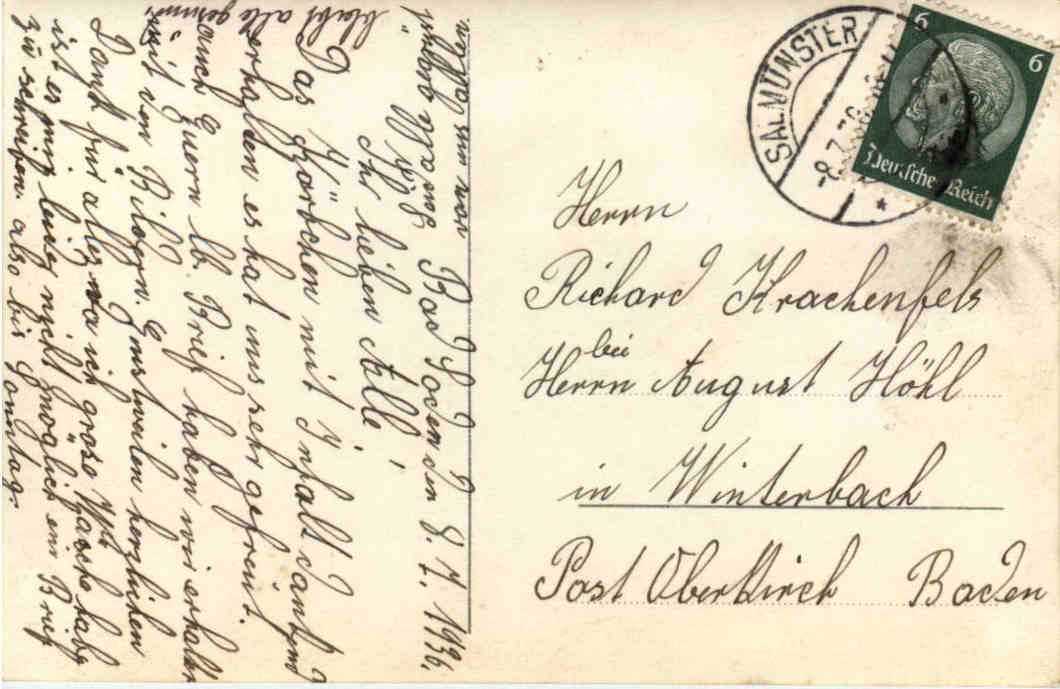 Bad Soden den 8. 7. 1936.
Ihr lieben Alle!
Das Körbchen mit Inhalt dankend
erhalten es hat uns sehr gefreut.
auch Euern lb. Brief haben wir erhalten
mit von Bildern. Einstweilen herzlichen
Dank für alles da ich große Wäsche habe
ist es mir leider nicht möglich ein Brief
zu schreiben. also bis Sontag.
bleibt alle gesund
SALMÜNSTER
8.7.36
6
6
Deutsches Reich
Herrn
Richard Krachenfels
bei
Herrn August Höhl
in Winterbach
Post Oberkirch Baden